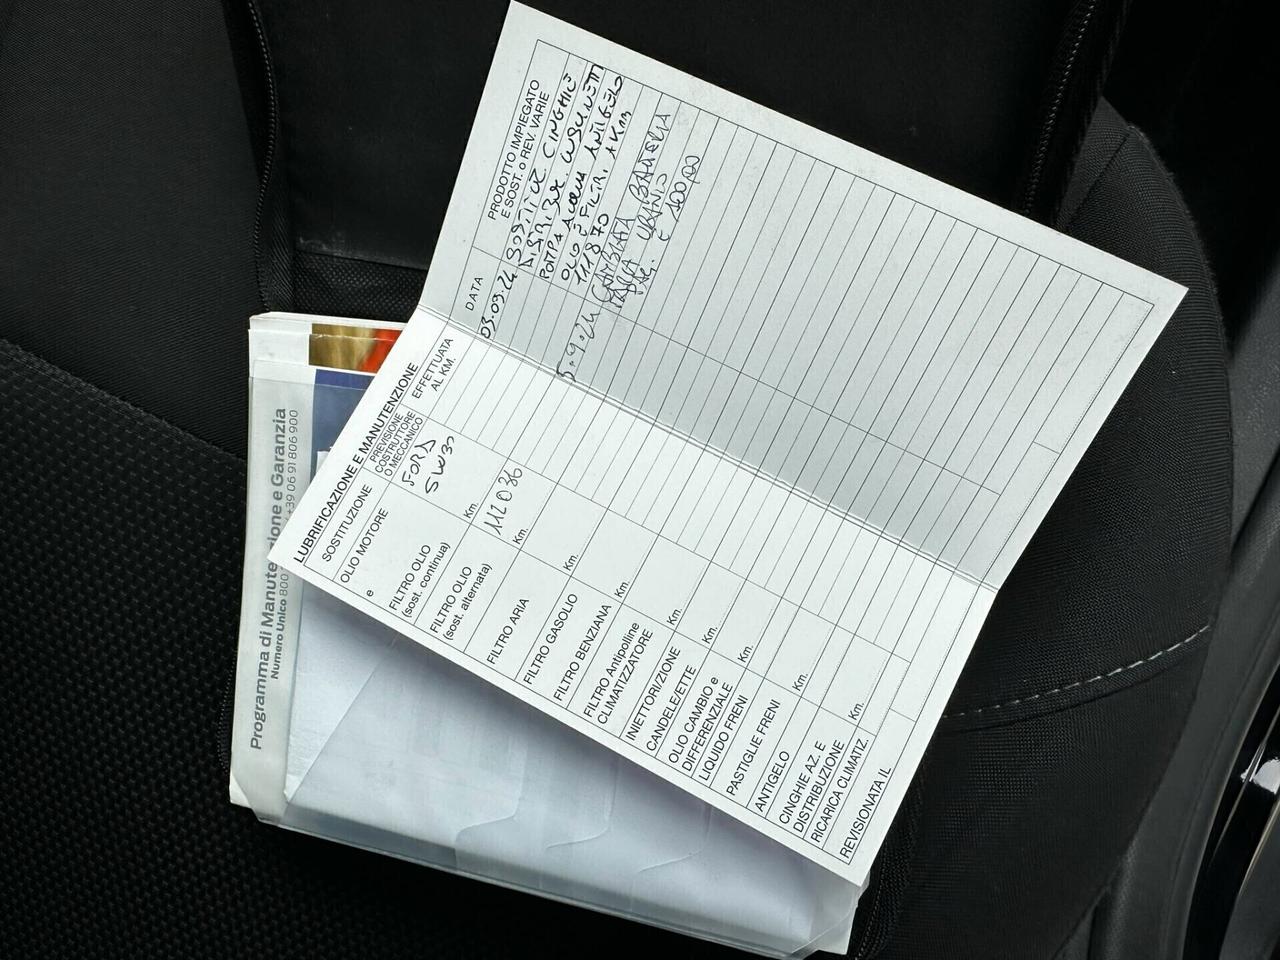 LUBRIFICAZIONE E MANUTENZIONE
SOSTITUZIONE
PREVISIONE
COSTRUTTORE
O MECCANICO
EFFETTUATA
AL KM.
DATA
PRODOTTO IMPIEGATO
E SOST. o REV. VARIE
OLIO MOTORE
FORD
5W30
e
FILTRO OLIO
(sost. continua)
Km.
FILTRO OLIO
(sost. alternata)
112036
Km.
FILTRO ARIA
FILTRO GASOLIO
Km.
FILTRO BENZIANA
FILTRO Antipolline
CLIMATIZZATORE
Km.
INIETTORI/ZIONE
CANDELE/ETTE
Km.
OLIO CAMBIO e
DIFFERENZIALE
Km.
LIQUIDO FRENI
PASTIGLIE FRENI
Km.
ANTIGELO
Km.
CINGHIE AZ. E
DISTRIBUZIONE
RICARICA CLIMATIZ.
Km.
REVISIONATA IL
03.09.24 SOSTITUZ CINGHIE
DISTRIBUZ.
POMPA ACQUA
OLIO E FILTRI. ANTIGELO
111870 A KM
5.9.24 CAMBIATA BATTERIA
PAG. € 100,00
Programma di Manutenzione e Garanzia
Numero Unico 800
+39 06 91 806 900